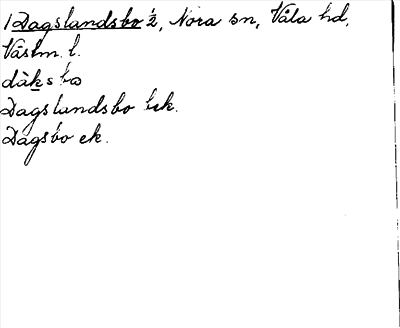 1 Dagslandsbo ½, Nora sn, Våla hd,
Västm. l.
dàksbo
Dagslandsbo bek.
Dagsbo ek.